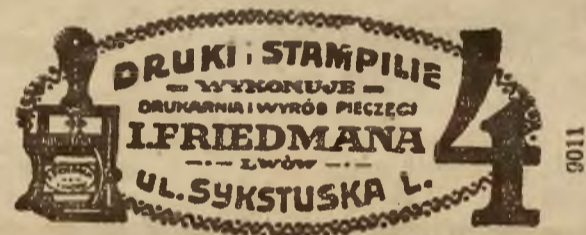 DRUKI i STAMPILIE
WYKONUJE
DRUKARNIA i WYRÓB PIECZĘCI
I. FRIEDMANA
LWÓW
UL. SYKSTUSKA L. 4
9011